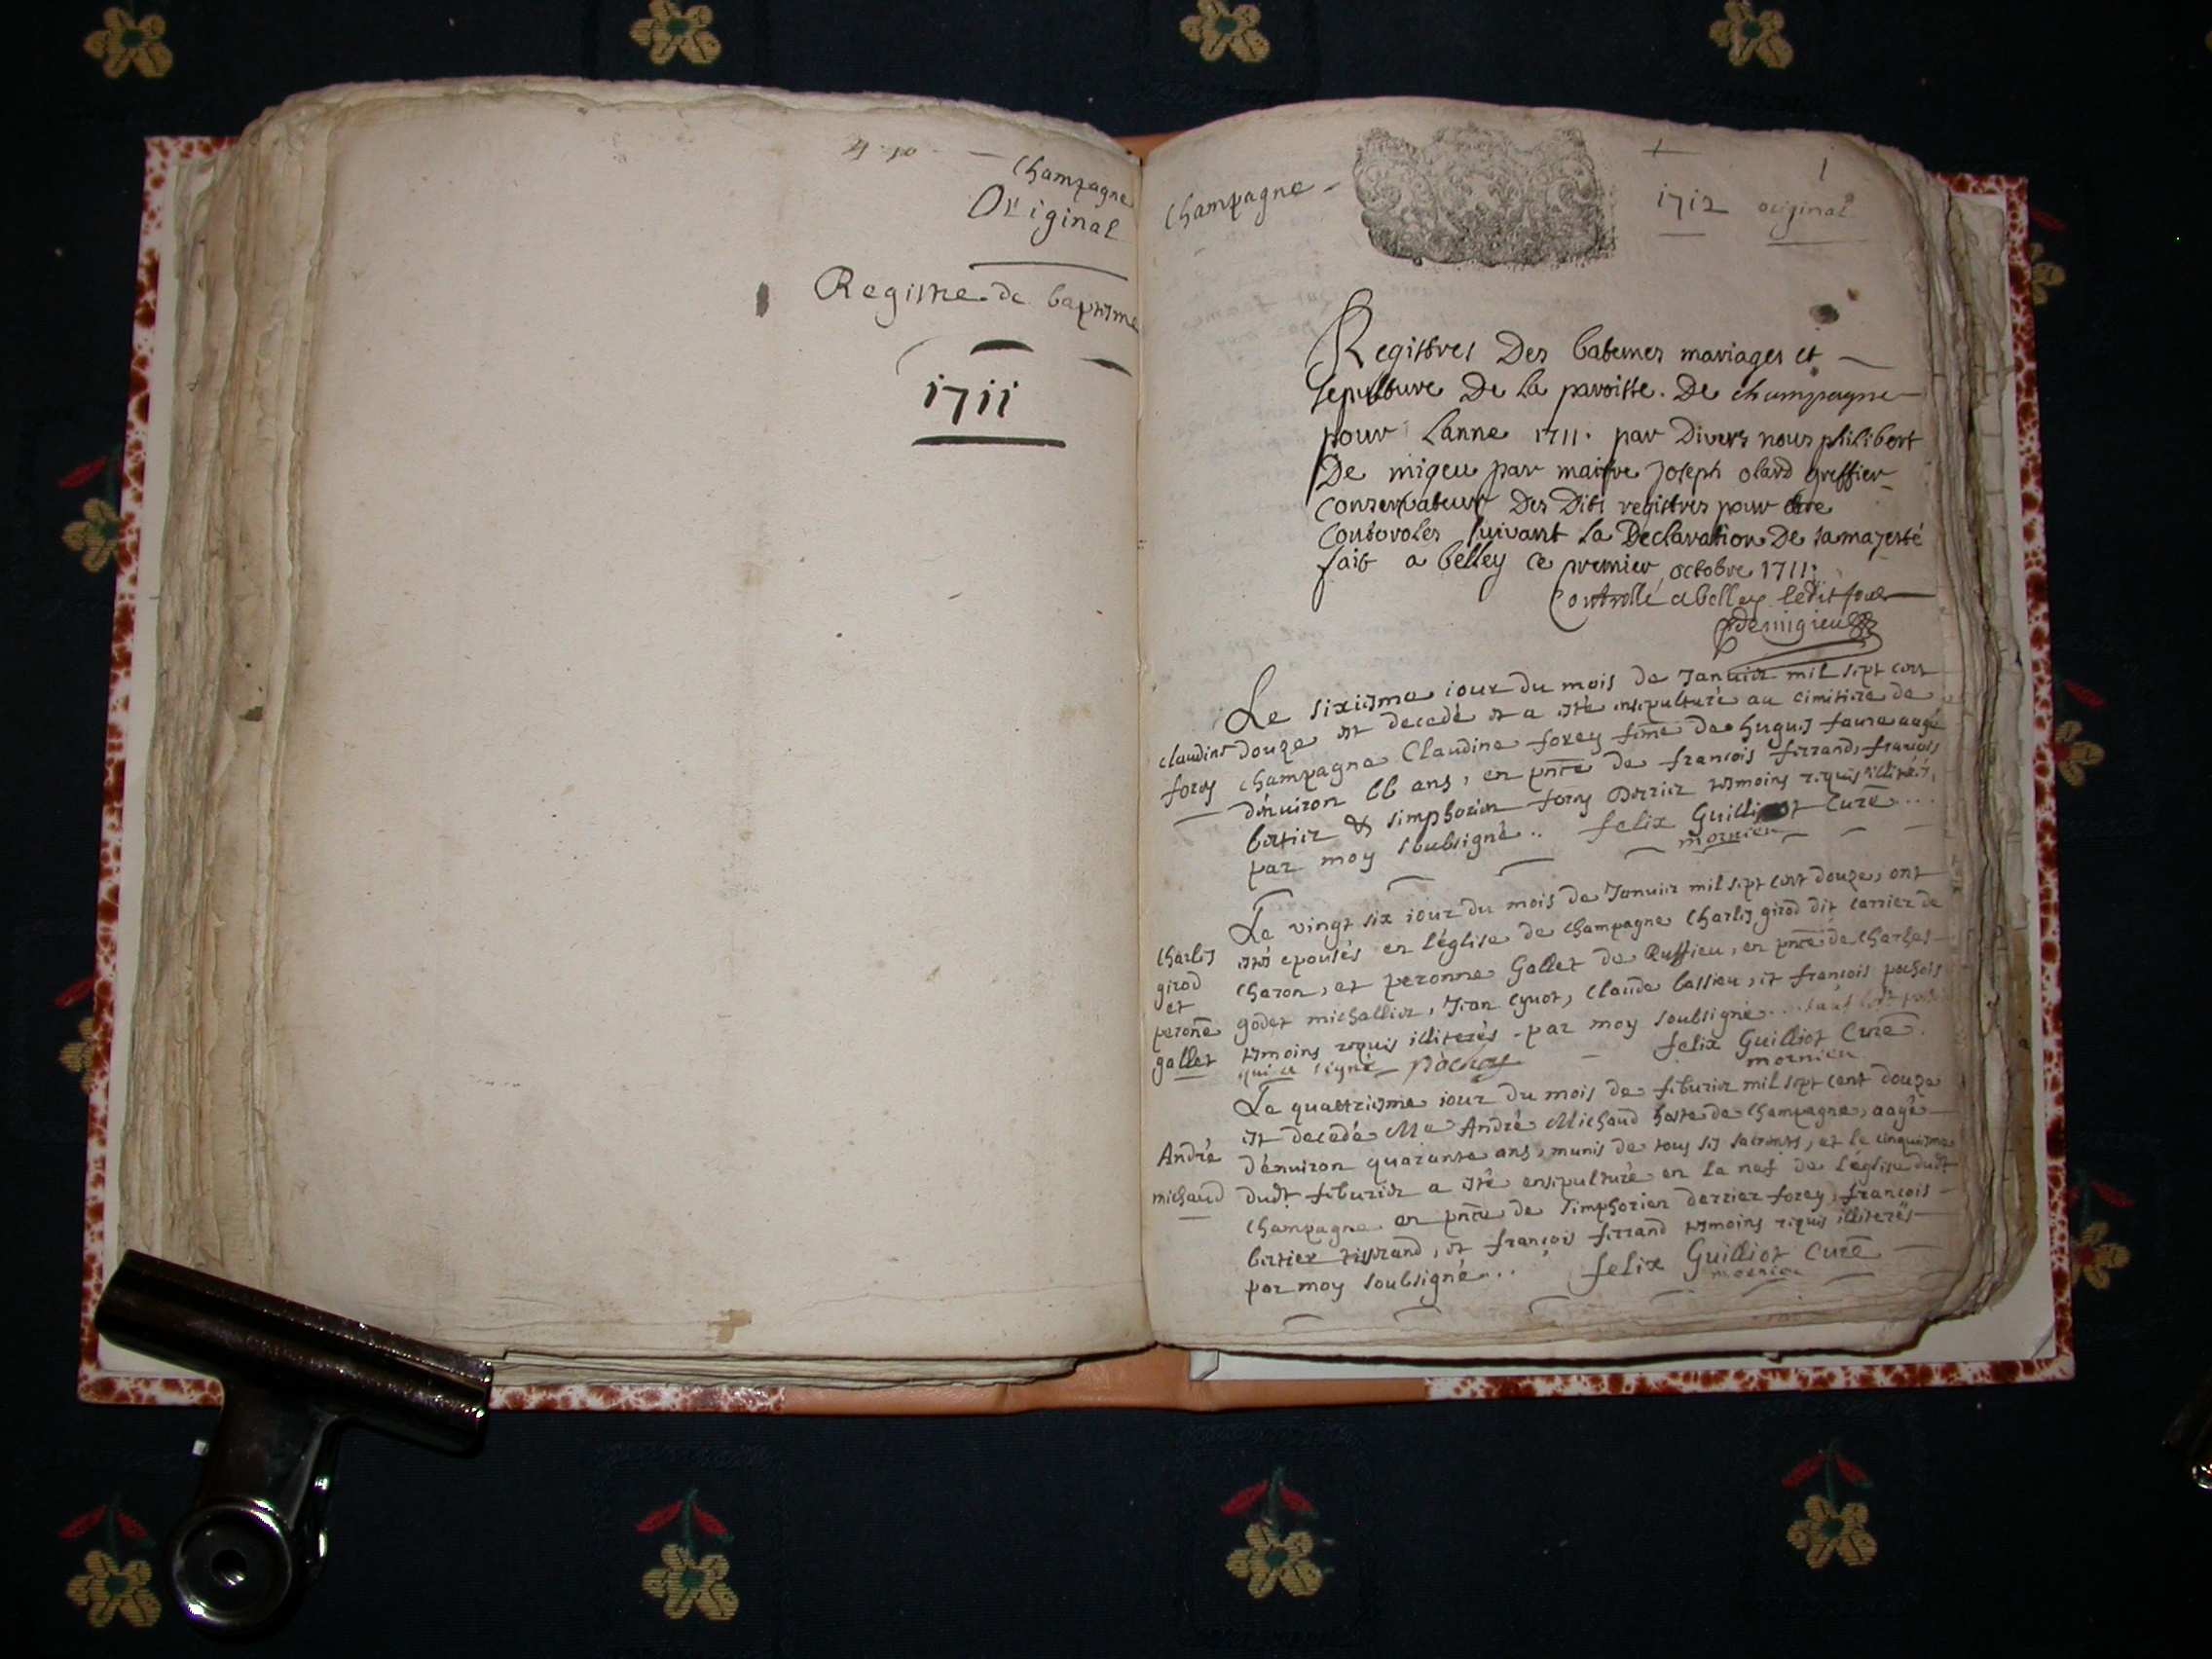 champagne
Original
Registre de baptisme
1711
champagne
1712 original
1
Registres Des batemes mariages et
sepulture De la paroisse. De champagne
pour lanne 1711. par Divers nous philibert
De migeu par maitre Joseph olard greffier
conservateur Des Dits registres pour etre
controles suivant la Declaration De sa majesté
fait a belley ce premier octobre 1711.
Controllé a belley ledit jour
demigieu
Le sixiesme iour du mois de Januier mil sept cent
douze est decedé et a esté ensepulturé au cimitiere de
champagne Claudine forey fme de hugues faure aagé
d'enuiron 66 ans, en pnce de francois ferrand, francois
bertier & simphorien forey Derrier tesmoins requis illiterés,
par moy soubsigné .. felix Guilliot Curé ...
mornieu
claudine
forey
Le vingt six iour du mois de Januier mil sept cent douze, ont
estés epousés en l'église de champagne Charles girod dit carrier de
charon, et peronne Gallet de Ruffieu, en pnce de Charles
godet michallier, Jean Cynot, Claude bassieu, et francois pochois
tesmoins requis illiterés - par moy soubsigné ..
qui a signé felix Guilliot Curé.
mornieu
Charles
girod
et
peroñe
gallet
Le quattriesme iour du mois de feburier mil sept cent douze
est decedé Me André Michaud hoste de Champagne, aagé
d'enuiron quarante ans, munis de tous ses sacremts, et le cinquiesme
dudt feburier a esté ensepulturé en la nef de l'église dudt
Champagne en pnce de simphorien derrier forey, francois
bertier tisserand, et francois ferrand tesmoins requis illiterés
par moy soubsigné ... felix Guilliot Curé
mornieu
André
michaud